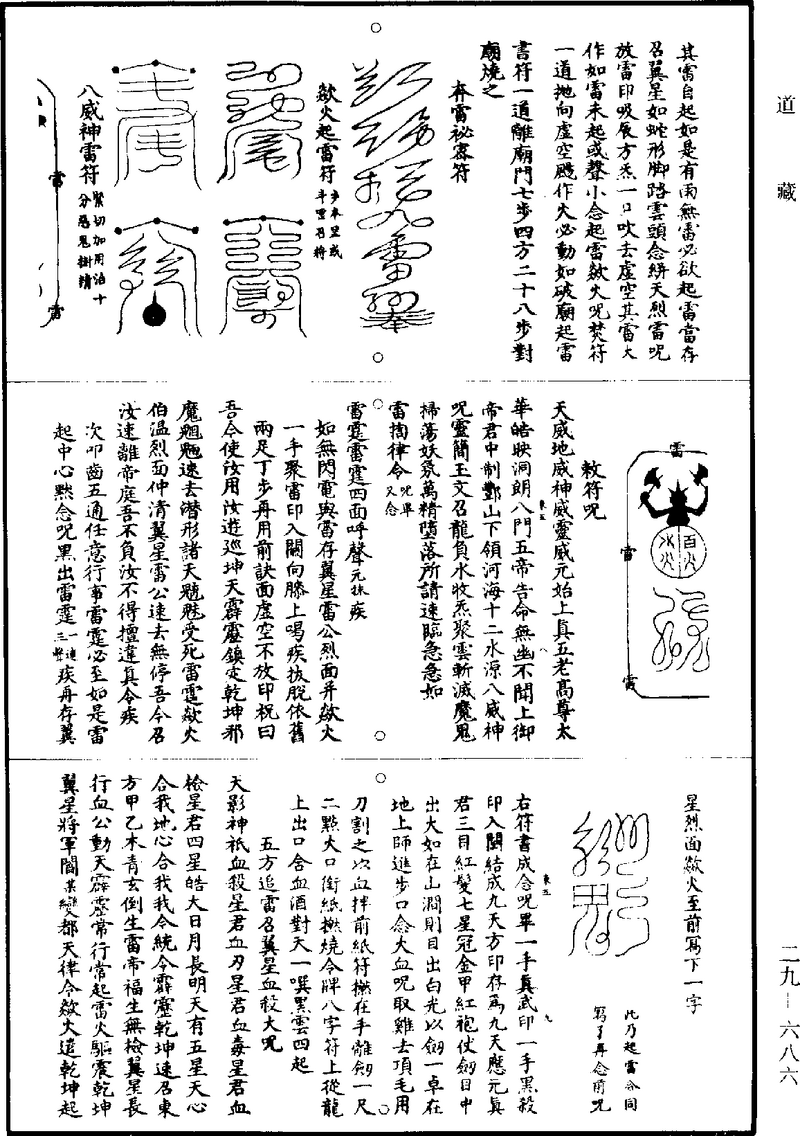 道藏
其雷自起如是有雨無雷必欲起雷當存
召翼星如蛇形脚踏雲頭念絣天烈雷呪
放雷印吸辰方炁一口吹去虛空其雷大
作如雷未起或聲小念起雷歘火呪焚符
一道拋向虛空颷作火必動如破廟起雷
書符一道離廟門七步四方二十八步對
廟燒之
奔雷祕密符
歘火起雷符
步本星或
斗罡召將
八威神雷符
緊切加用治十
分惡鬼樹精
雷
雷
雷
雷
雷
百火
水火
敕符呪
天威地威神威靈威元始上真五老高尊太
華皓映洞朗八門五帝告命無幽不聞上御
帝君中制酆山下領河海十二水源八威神
呪靈簡玉文召龍負水收炁聚雲斬滅魔鬼
掃蕩妖氛萬精墮落所請速臨急急如
雷擋律令
呪畢
又念
雷霆雷霆四面呼聲元抹疾
如無閃電與雷存翼星雷公烈面并歘火
一手聚雷印入關向膝上喝疾拔脫依舊
兩足丁步再用前訣面虛空不放印祝曰
吾今使汝用汝遊巡坤天霹靂鎮定乾坤邪
魔魍魎速去潛形諸天魑魅受死雷霆歘火
伯溫烈面仲清翼星雷公速去無停吾今召
汝速離帝庭吾不負汝不得擅違真令疾
次叩齒五通任意行事雷霆必至如是雷
起中心默念呪黑出雷霆
一連
三聲
疾再存翼
星烈面歘火至前寫下一字
此乃起雷合同
寫了再念前呪
右符書成念呪畢一手真武印一手黑殺
印入關結成九天方印存為九天應元真
君三目紅髮七星冠金甲紅袍仗劍目中
出火如在山澗則目出白光以劍一卓在
地上師進步口念火血呪取雞去頂毛用
刀割之以血拌前紙符撚在手離劍一尺
二點火口銜紙撚燒令牌八字符上從龍
上出口含血酒對天一噀黑雲四起
五方追雷召翼星血殺大呪
天影神祇血殺星君血刃星君血毒星君血
檢星君四星皓大日月長明天有五星天心
合我地心合我我令統令霹靂乾坤速召東
方甲乙木青玄倒生雷帝福生無檢翼星長
行血公動天霹靂常行常起雷火驅震乾坤
翼星將軍閻某變都天律令歘火遣乾坤起
二九—六八六